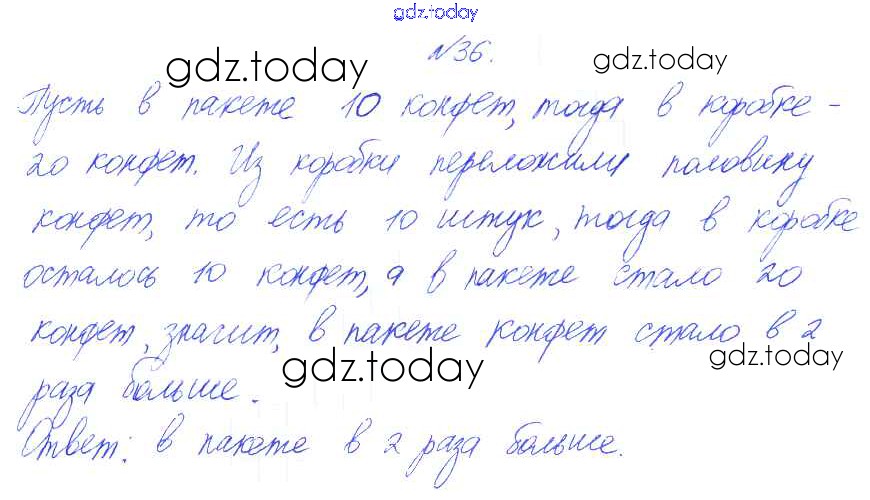 gdz.today
№36.
gdz.today gdz.today
Пусть в пакете 10 конфет, тогда в коробке -
20 конфет. Из коробки переложили половину
конфет, то есть 10 штук, тогда в коробке
осталось 10 конфет, а в пакете стало 20
конфет, значит, в пакете конфет стало в 2
gdz.today gdz.today
раза больше.
Ответ: в пакете в 2 раза больше.